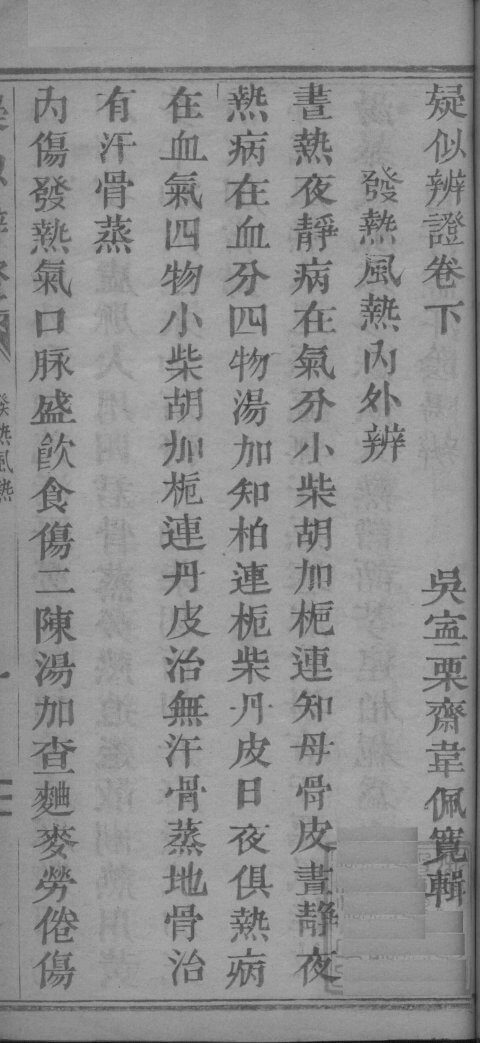 疑似辨證卷下　吳寍栗齋韋佩寬輯
發熱風熱內外辨
晝熱夜靜病在氣分小柴胡加梔連知母骨皮晝靜夜
熱病在血分四物湯加知柏連梔柴丹皮日夜俱熱病
在血氣四物小柴胡加梔連丹皮治無汗骨蒸地骨治
有汗骨蒸
內傷發熱氣口脉盛飮食傷二陳湯加查麯麥勞倦傷
發熱風熱